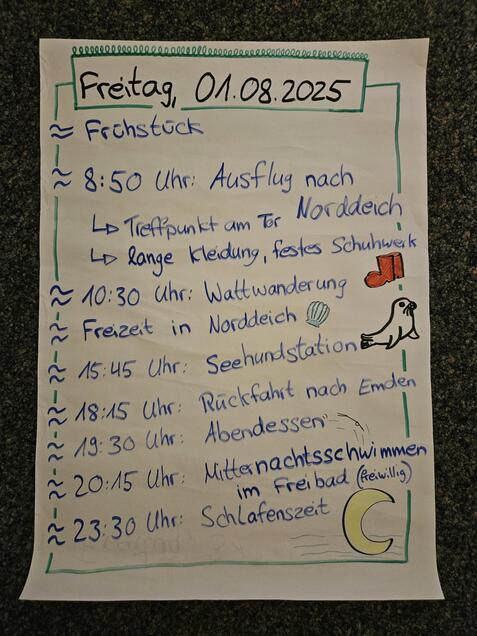 Freitag, 01.08.2025
≈ Frühstück
≈ 8:50 Uhr: Ausflug nach
Norddeich
↳ Treffpunkt am Tor
↳ lange Kleidung, festes Schuhwerk
≈ 10:30 Uhr: Wattwanderung
≈ Freizeit in Norddeich
≈ 15:45 Uhr: Seehundstation
≈ 18:15 Uhr: Rückfahrt nach Emden
≈ 19:30 Uhr: Abendessen
≈ 20:15 Uhr: Mitternachtsschwimmen
im Freibad (freiwillig)
≈ 23:30 Uhr: Schlafenszeit